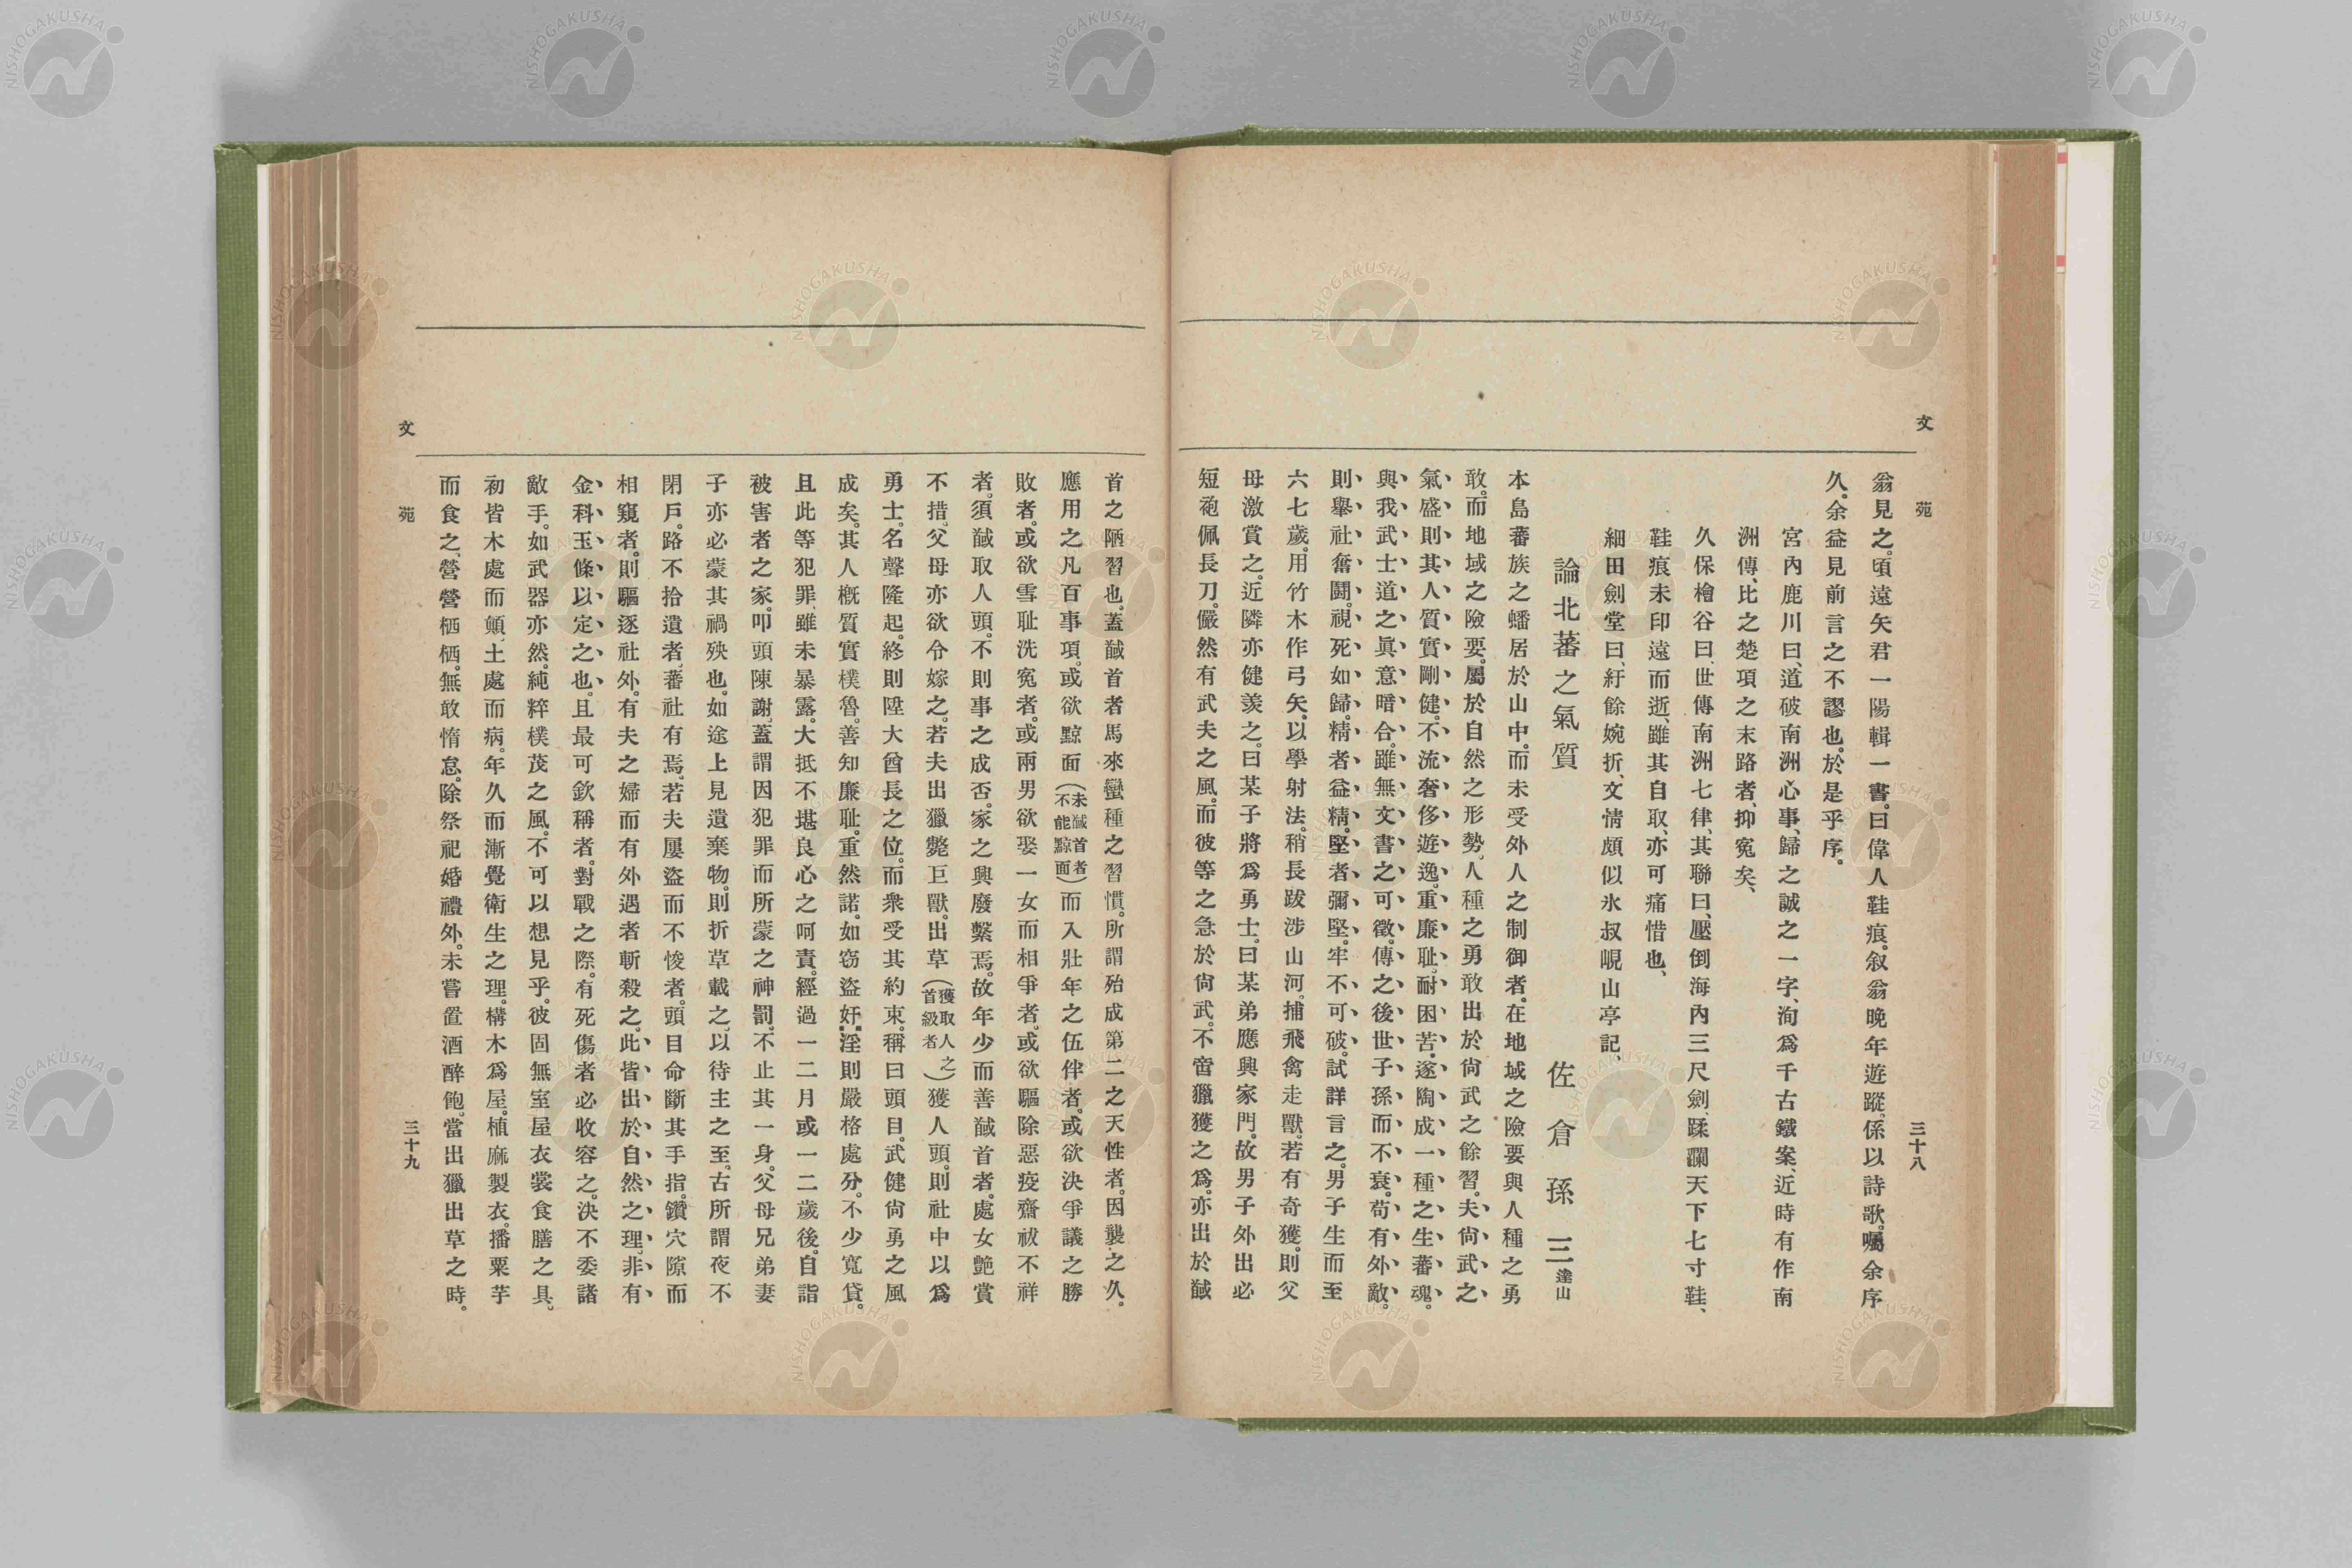 文苑
三十八
翁見之。頃遠矢君一陽輯一書。曰偉人鞋痕。叙翁晩年遊蹤。係以詩歌。囑余序
久。余益見前言之不謬也。於是乎序。
宮內鹿川曰、道破南洲心事、歸之誠之一字、洵爲千古鐵案、近時有作南
洲傳、比之楚項之末路者、抑寃矣、
久保檜谷曰、世傳南洲七律、其聯曰、壓倒海內三尺劍、蹂躙天下七寸鞋、
鞋痕未印遠而逝、雖其自取、亦可痛惜也、
細田劍堂曰、紆餘婉折、文情頗似氷叔峴山亭記、
論北蕃之氣質
佐倉孫三達山
本島蕃族之蟠居於山中。而未受外人之制御者。在地域之險要與人種之勇
敢。而地域之險要。屬於自然之形勢、人種之勇敢出於尙武之餘習。夫尙武之
氣盛則其人質實剛健。不流奢侈遊逸。重廉耻。耐困苦。遂陶成一種之生蕃魂。
與我武士道之眞意暗合。雖無文書之可徵。傳之後世子孫而不衰。苟有外敵。
則擧社奮鬪。視死如歸。精者益精。堅者彌堅。牢不可破。試詳言之。男子生而至
六七歲。用竹木作弓矢。以學射法。稍長跋涉山河。捕飛禽走獸。若有奇獲。則父
母激賞之。近隣亦健羨之。曰某子將爲勇士。曰某弟應興家門。故男子外出必
短袍佩長刀。儼然有武夫之風。而彼等之急於尙武。不啻獵獲之爲。亦出於馘
首之陋習也。蓋馘首者馬來蠻種之習慣。所謂殆成第二之天性者。因襲之久。
應用之凡百事項。或欲黥面(未馘首者不能黥面)而入壯年之伍伴者。或欲決爭議之勝
敗者。或欲雪耻洗寃者。或兩男欲娶一女而相爭者。或欲驅除惡疫齋祓不祥
者。須馘取人頭。不則事之成否。家之興廢繫焉。故年少而善馘首者。處女艶賞
不措。父母亦欲令嫁之。若夫出獵斃巨獸。出草(獲取人之首級者)獲人頭。則社中以爲
勇士。名聲隆起。終則陞大酋長之位。而衆受其約束。稱曰頭目。武健尙勇之風
成矣。其人槪質實樸魯。善知廉耻。重然諾。如窃盜奸淫則嚴格處分。不少寬貸。
且此等犯罪、雖未暴露。大抵不堪良心之呵責。經過一二月或一二歲後。自詣
被害者之家。叩頭陳謝。蓋謂因犯罪而所蒙之神罰。不止其一身。父母兄弟妻
子亦必蒙其禍殃也。如途上見遺棄物。則折草載之、以待主之至。古所謂夜不
閉戶。路不拾遺者、蕃社有焉。若夫屢盜而不悛者。頭目命斷其手指。鑽穴隙而
相窺者。則驅逐社外。有夫之婦而有外遇者斬殺之。此皆出於自然之理。非有
金科玉條以定之也。且最可欽稱者。對戰之際。有死傷者必收容之。決不委諸
敵手。如武器亦然。純粹樸茂之風。不可以想見乎。彼固無室屋衣裳食膳之具。
初皆木處而顚、土處而病。年久而漸覺衛生之理。構木爲屋。植麻製衣。播粟芋
而食之、營營栖栖。無敢惰怠。除祭祀婚禮外。未嘗置酒醉飽。當出獵出草之時。
文苑
三十九
NISHOGAKUSHA